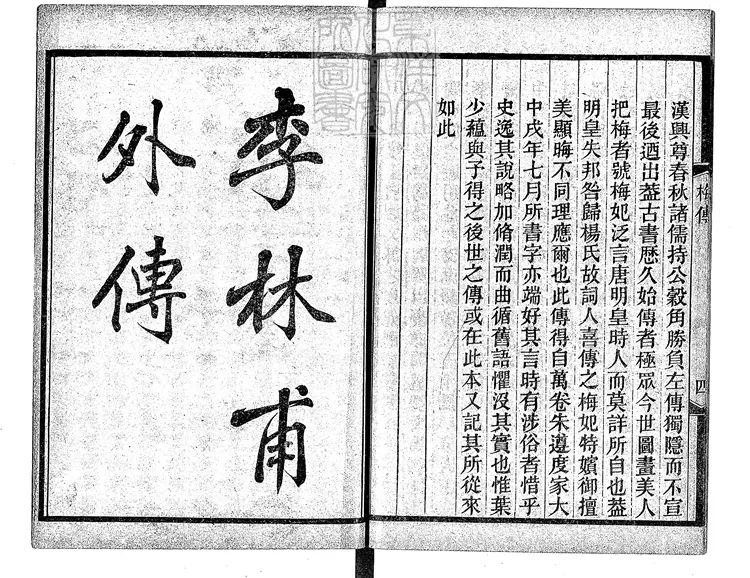 漢興尊春秋諸儒持公穀角勝負左傳獨隱而不宣
最後迺出葢古書歷久始傳者極眾今世圖畫美人
把梅者號梅妃泛言唐明皇時人而莫詳所自也葢
明皇失邦咎歸楊氏故詞人喜傳之梅妃特嬪御擅
美顯晦不同理應爾也此傳得自萬卷朱遵度家大
中戌年七月所書字亦端好其言時有涉俗者惜乎
史逸其說略加脩潤而曲循舊語懼沒其實也惟葉
少蘊與予得之後世之傳或在此本又記其所從來
如此
梅傳
四
李林甫
外傳